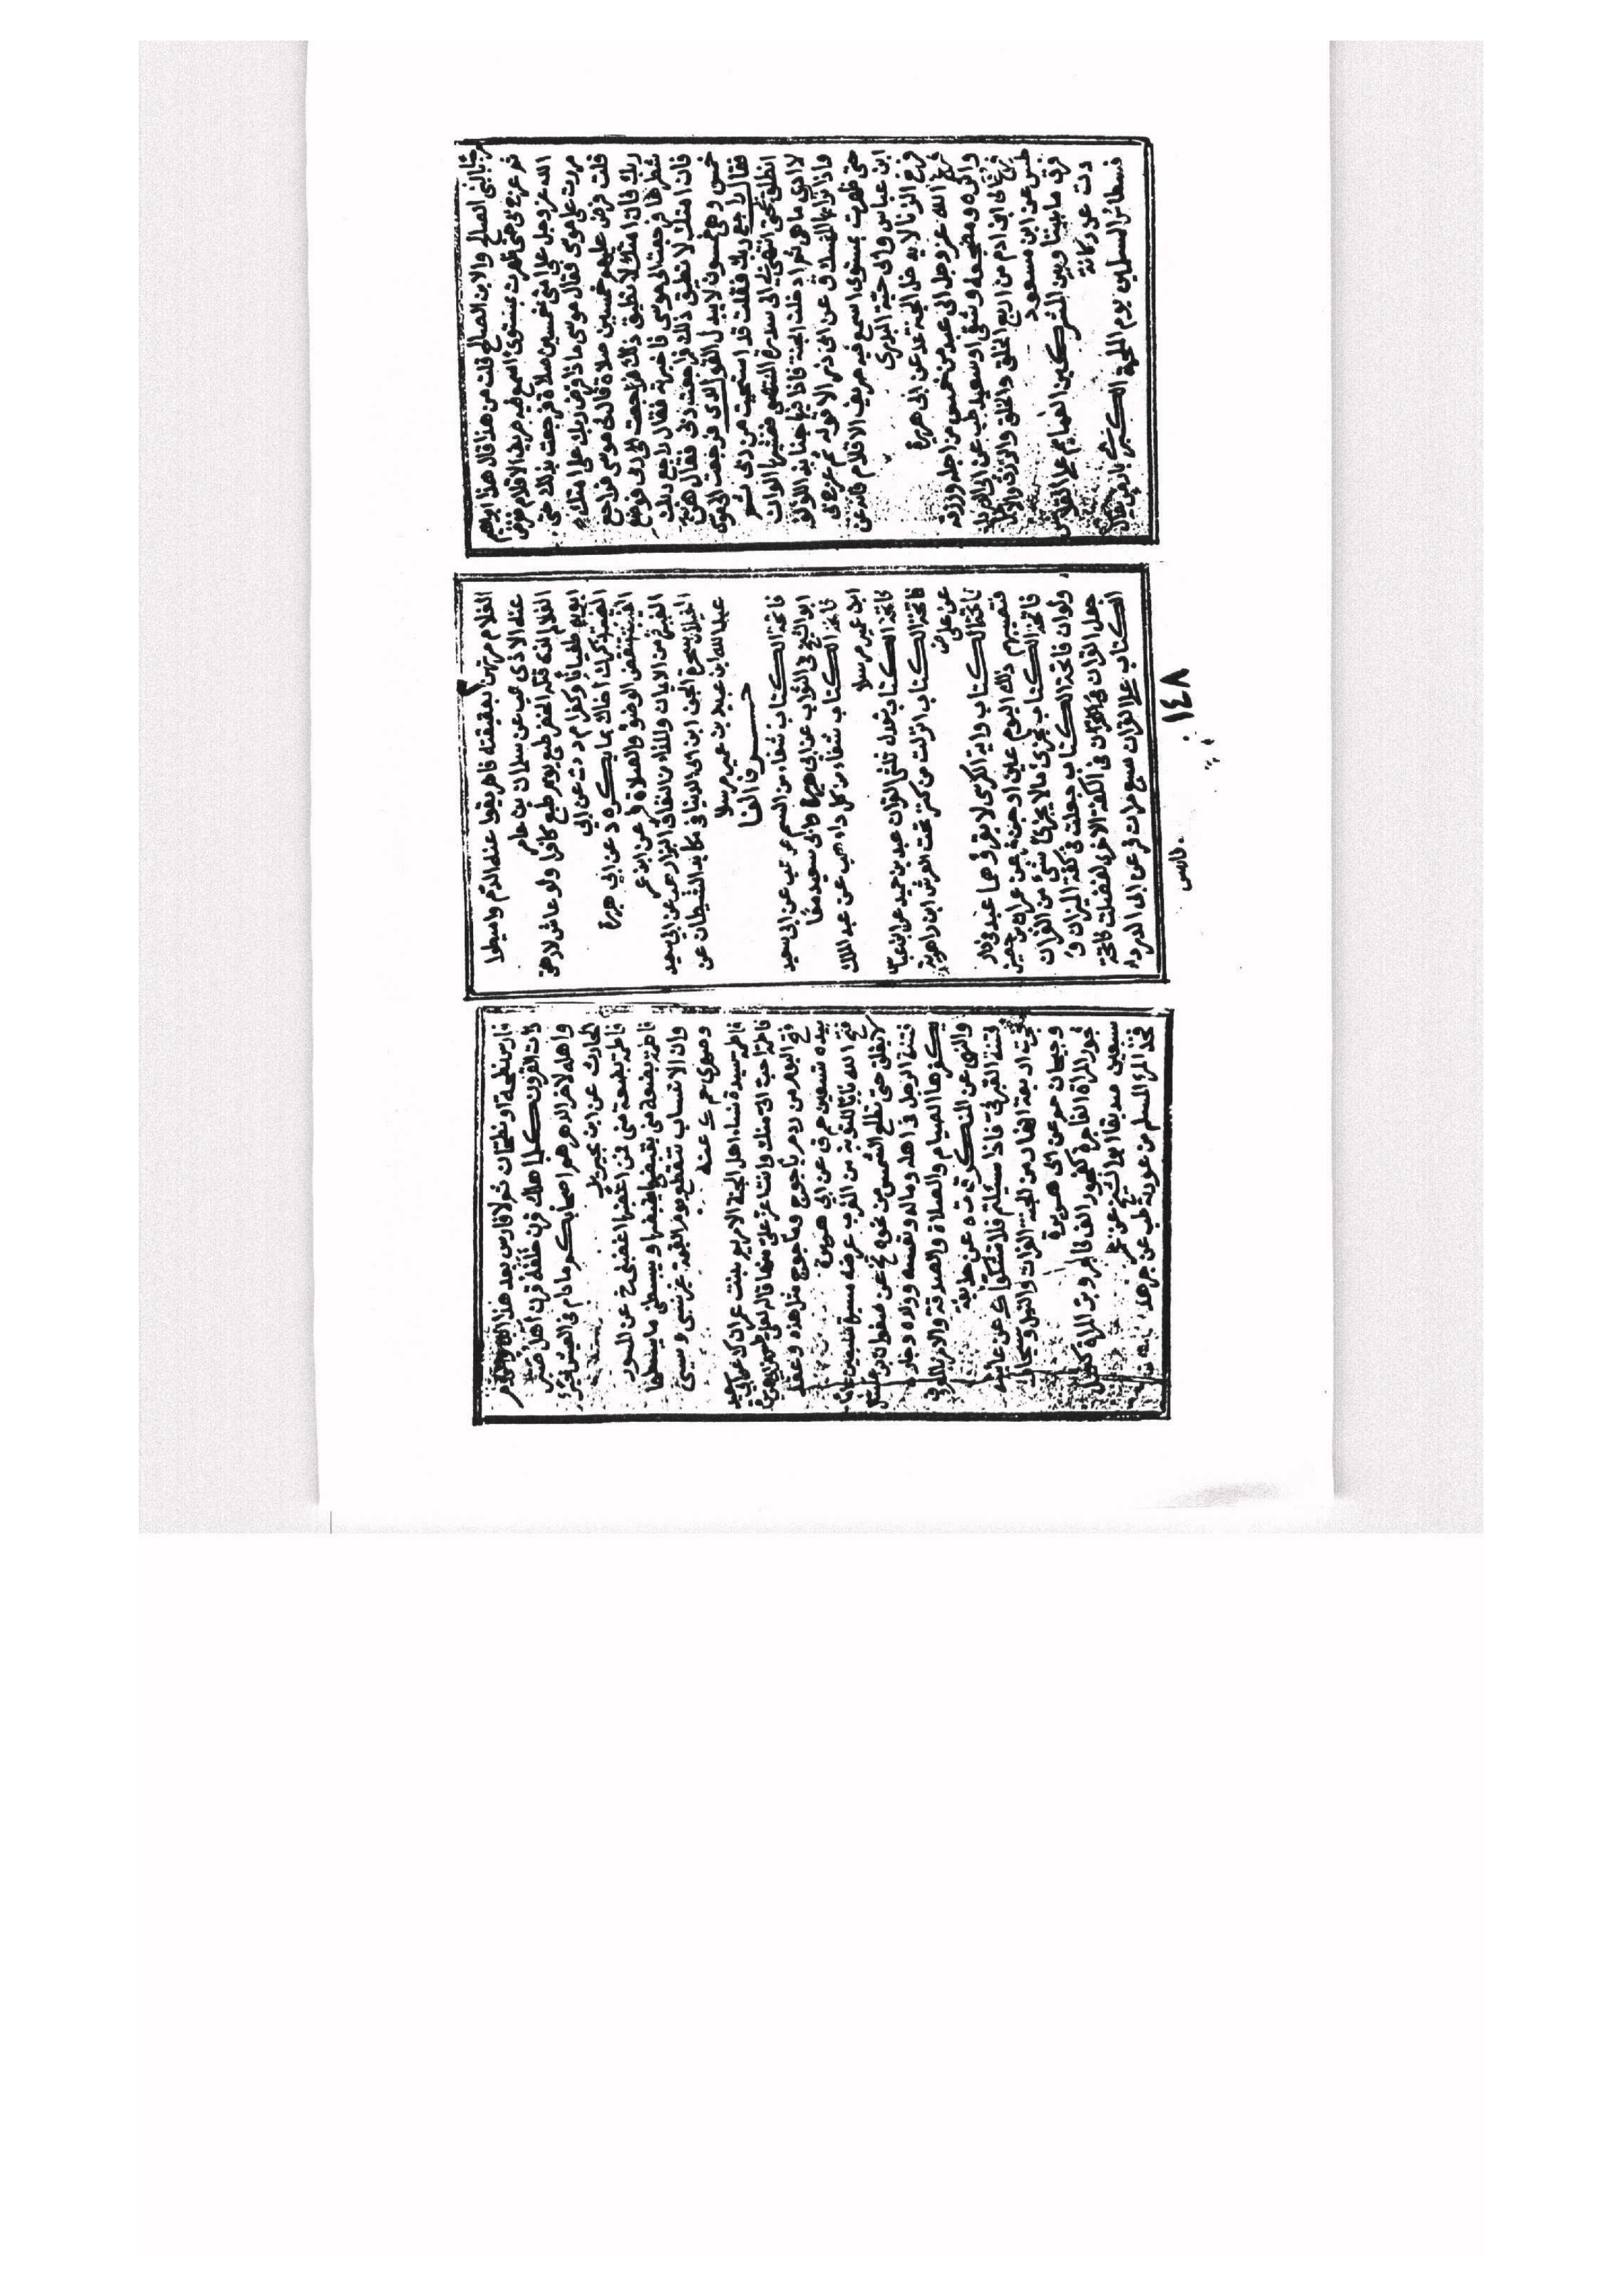 مرحبا بالنبى الصالح والابن الصالح قلت من هذا قال هذا ابراهيم
ثم عرج بى حتى ظهرت بمستوى اسمع فيه صريف الاقلام ففرض
الله عز وجل على امتى خمسين صلاة فرجعت بذلك حتى
مررت على موسى فقال موسى ماذا فرض ربك على امتك
قلت فرض عليهم خمسين صلاة قال لى موسى فراجع
ربك فان امتك لا تطيق ذلك فراجعت ربى فوضع
شطرها فرجعت الى موسى فاخبرته فقال راجع ربك
فان امتك لا تطيق ذلك فراجعت ربى فقال هن
خمس وهى خمسون لا يبدل القول لدى فرجعت الى موسى
فقال راجع ربك فقلت قد استحييت من ربى ثم
انطلق بى حتى انتهى بى الى سدرة المنتهى فغشيها الوان
لا ادرى ما هى ثم ادخلت الجنة فاذا فيها جنابذ اللؤلؤ
واذا ترابها المسك ق عن ابى ذر الا قوله ثم عرج بى
حتى ظهرت بمستوى اسمع فيه صريف الاقلام فانه عن
ابن عباس وابى حبة البدرى
فرخ الزنا لا يدخل الجنة عد عن ابى هريرة
فرغ الله عز وجل الى كل عبد من خمس من اجله ورزقه
واثره ومضجعه وشقى او سعيد طب عن ابى الدرداء
فرغ الى ابن ادم من اربع الخلق والخلق والرزق والاجل
طس عن ابن مسعود
فرق ما بيننا وبين المشركين العمائم على القلانس
دت عن ركانة
فسطاط المسلمين يوم الملحمة الكبرى بارض يقال
الغلام مرتهن بعقيقته فاهريقوا عنه الدم واميطوا
عنه الاذى هب عن سلمان بن عامر
الغلام الذى قتله الخضر طبع يوم طبع كافرا ولو عاش لارهق
ابويه طغيانا وكفرا م دت عن ابى
الغيبة ذكرك اخاك بما يكره د عن ابى هريرة
الغيبة تنقض الوضوء والصلاة فر عن ابن عمر
الغيرة من الايمان والمذاء من النفاق البزار هب عن ابى سعيد
الغيلان سحرة الجن ابن ابى الدنيا فى مكايد الشيطان عن
عبد الله ابن عبيد بن عمير مرسلا
حرف الفا
فاتحة الكتاب شفاء من السم ص هب عن ابى سعيد
ابو الشيخ فى الثواب عن ابى هريرة وابى سعيد معا
فاتحة الكتاب شفاء من كل داء هب عن عبد الملك
ابن عمير مرسلا
فاتحة الكتاب تعدل ثلثى القران عبد بن حميد عن ابن عباس
فاتحة الكتاب انزلت من كنز تحت العرش ابن راهويه
عن على
فاتحة الكتاب واية الكرسى لا يقرؤهما عبد فى دار
فتصيبهم ذلك اليوم عين انس او جن فر عن عمران بن حصين
فاتحة الكتاب تجزى ما لا يجزى شئ من القران
ولو ان فاتحة الكتاب جعلت فى كفة الميزان و
جعل القران فى الكفة الاخرى لفضلت فاتحة
الكتاب على القران سبع مرات فر عن ابى الدرداء
فارس
١٤٨
فارس نطحة او نطحتان ثم لا فارس بعد هذا ابدا والروم
ذات القرون كلما هلك قرن خلفه قرن اهل صبر
واهله لاخر الدهر هم اصحابكم ما دام فى العيش خير
الحارث عن ابن محيريز
فاطمة بضعة منى فمن اغضبها اغضبنى خ عن المسور
فاطمة بضعة منى يقبضنى ما يقبضها ويبسطنى ما يبسطها
وان الانساب تنقطع يوم القيمة غير نسبى وسببى
وصهرى حم ك عنه
فاطمة سيدة نساء اهل الجنة الا مريم بنت عمران ك عن ابى سعيد
فاطمة احب الى منك وانت اعز على منها قاله لعلى طس عن ابى هريرة
فتح اليوم من ردم ياجوج وماجوج مثل هذه وعقد
بيده تسعين حم ق عن ابى هريرة
فتح الله بابا للتوبة من المغرب عرضه مسيرة سبعين عاما
لا يغلق حتى تطلع الشمس من نحوه تخ عن صفوان بن عسال
فتنة الرجل فى اهله وماله ونفسه وولده وجاره
يكفرها الصيام والصلاة والصدقة والامر بالمعروف
والنهى عن المنكر ق ت ه عن حذيفة
فتنة القبر فى فاذا سئلتم عنى فلا تشكوا ك عن عايشة
فجرت اربعة انهار من الجنة الفرات والنيل وسيحان
وجيحان حم عن ابى هريرة
فجور المراة الفاجرة كفجور الف فاجر وبر المراة كعمل
سبعين صديقا ابو الشيخ عن ابن عمر
فخذ المرء المسلم من عورته طب عن جرهد